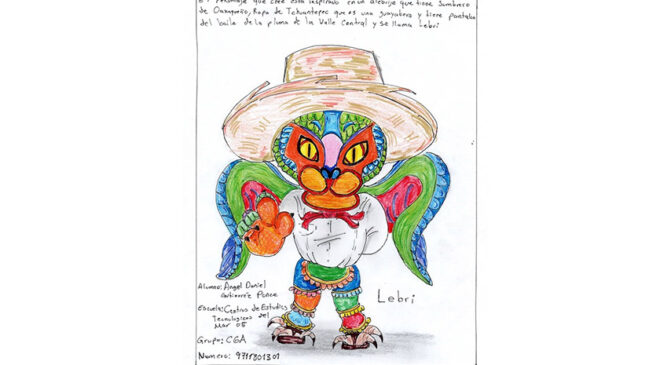 El Personaje que cree esta inspirado en un alebrije que tiene Sombrero
de Oaxaqueño, Ropa de Tehuantepec que es una guayabera y tiene pantalon
del baile de la pluma de la Valle Central y se llama Lebri
Lebri
Alumno: Angel Daniel
Gutierrez Ponce
Escuela: Centro de Estudios
Tecnologicos del
Mar 05
Grupo: CGA
Numero: 9715801301